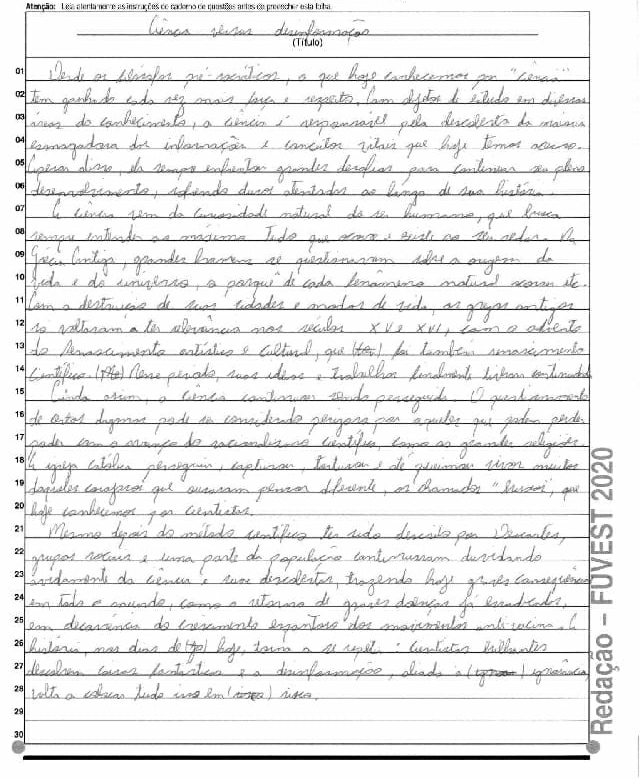 Atenção: Leia atentamente as instruções do caderno de questões antes de preencher esta folha.
Ciência versus desinformação
(Título)
01 Desde os filósofos pré-socráticos, o que hoje conhecemos por "ciência"
02 tem ganhado cada vez mais força e respeito. Com objetos de estudo em diversas
03 áreas do conhecimento, a ciência é responsável pela descoberta da maioria
04 esmagadora das informações e conceitos vitais que hoje temos acesso.
05 Apesar disso, ela sempre enfrentou grandes desafios para continuar seu pleno
06 desenvolvimento, sofrendo duros atentados ao longo de sua história.
07 A ciência vem da curiosidade natural do ser humano, que busca
08 sempre entender ao máximo tudo que ocorre e existe ao seu redor. Na
09 Grécia Antiga, grandes homens se questionavam sobre a origem da
10 vida e do universo, o porquê de cada fenômeno natural ocorrer etc.
11 Com a destruição de suas cidades e modos de vida, os gregos antigos
12 só voltaram a ter relevância nos séculos XV e XVI, com o advento
13 do Renascimento artístico e cultural, que foi também renascimento
14 científico. Nesse período, suas ideias e trabalhos finalmente tiveram continuidade.
15 Ainda assim, a ciência continuou sendo perseguida. O questionamento
16 de certos dogmas pode ser considerado perigoso por aqueles que podem perder
17 poder com o avanço do racionalismo científico, como as grandes religiões.
18 A igreja Católica perseguiu, capturou, torturou e até queimou vivos muitos
19 daqueles corajosos que ousaram pensar diferente, os chamados "bruxos", que
20 hoje conhecemos por cientistas.
21 Mesmo depois do método científico ter sido descrito por Descartes,
22 grupos sociais e uma parte da população continuaram duvidando
23 avidamente da ciência e suas descobertas, trazendo hoje graves consequências
24 em todo o mundo, como o retorno de graves doenças já erradicadas,
25 em decorrência do crescimento espantoso dos movimentos anti vacina. A
26 história, nos dias de hoje, torna a se repetir: cientistas brilhantes
27 descobrem coisas fantásticas e a desinformação, aliada à ignorância,
28 volta a colocar tudo isso em risco.
29
30
Redação – FUVEST 2020